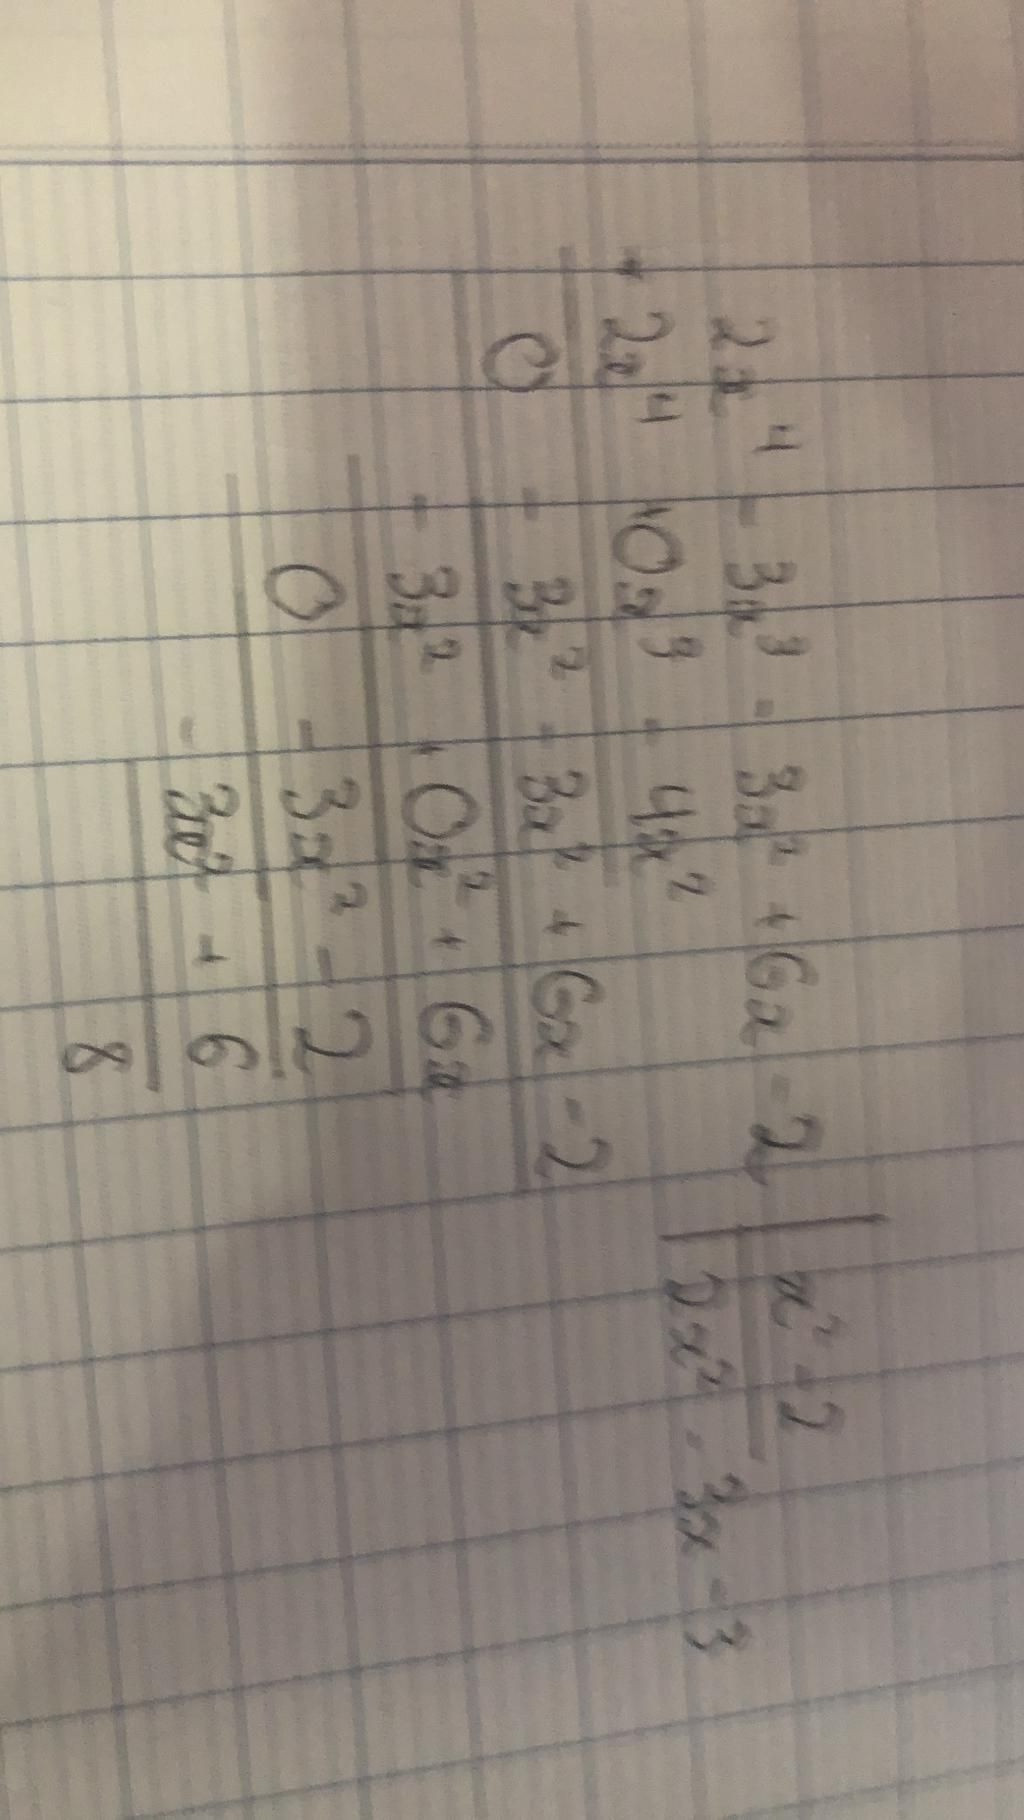 2x⁴ - 3x³ - 3x² + 6x - 2 | x² - 2
2x⁴ + 0x³ - 4x² | 2x² - 3x - 3
0 - 3x² - 3x² + 6x - 2
- 3x² + 0x² + 6x
0 - 3x² - 2
- 3x² + 6
8